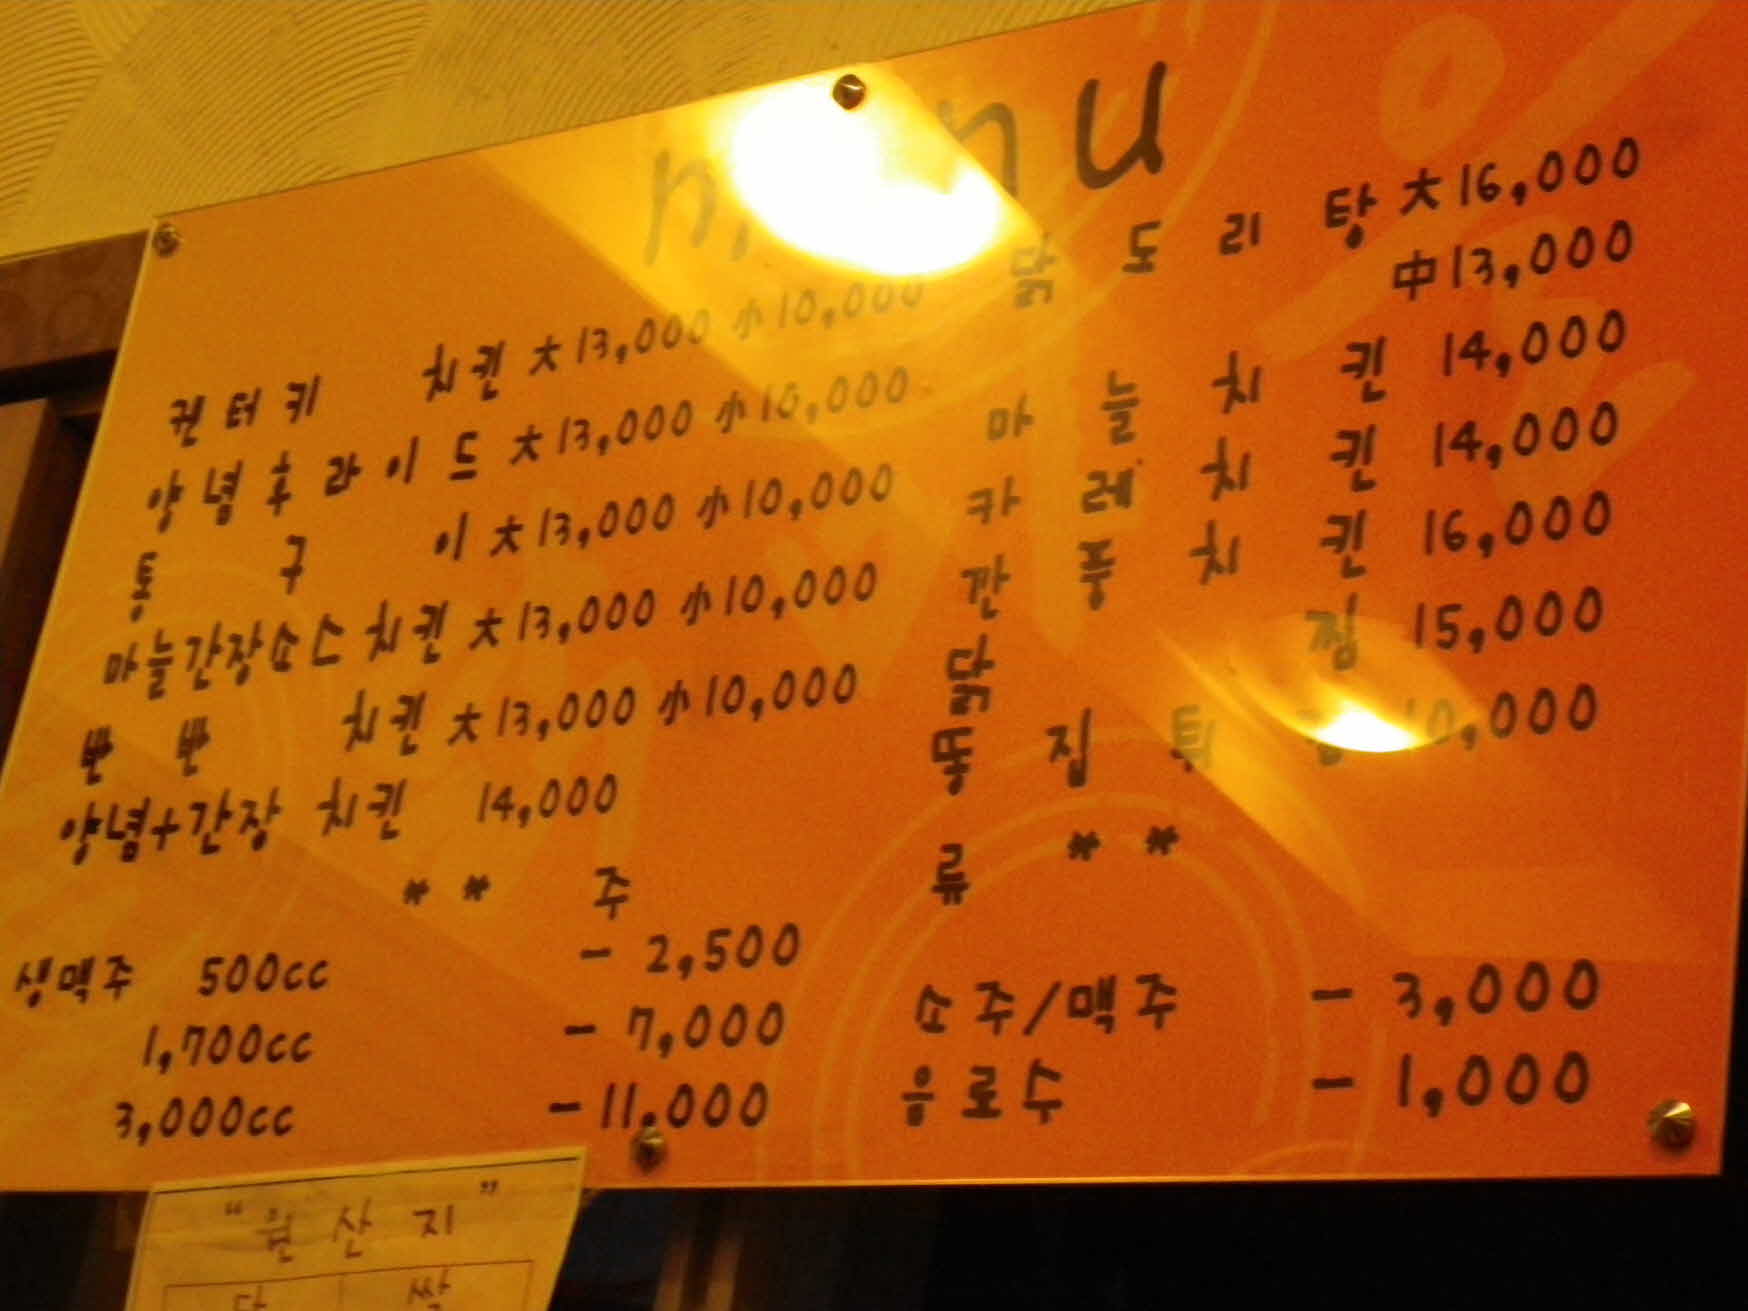 menu
퀜터키 치킨 大13,000 小10,000
양념후라이드 大13,000 小10,000
통구이 大13,000 小10,000
마늘간장소스치킨 大13,000 小10,000
반반 치킨 大13,000 小10,000
양념+간장 치킨 14,000
닭도리탕 大16,000
中13,000
마늘치킨 14,000
카레치킨 14,000
깐풍치킨 16,000
닭찜 15,000
똥집튀 10,000
** 주류 **
생맥주 500cc - 2,500
1,700cc - 7,000
3,000cc - 11,000
소주/맥주 - 3,000
음로수 - 1,000
"원산지"
닭 쌀